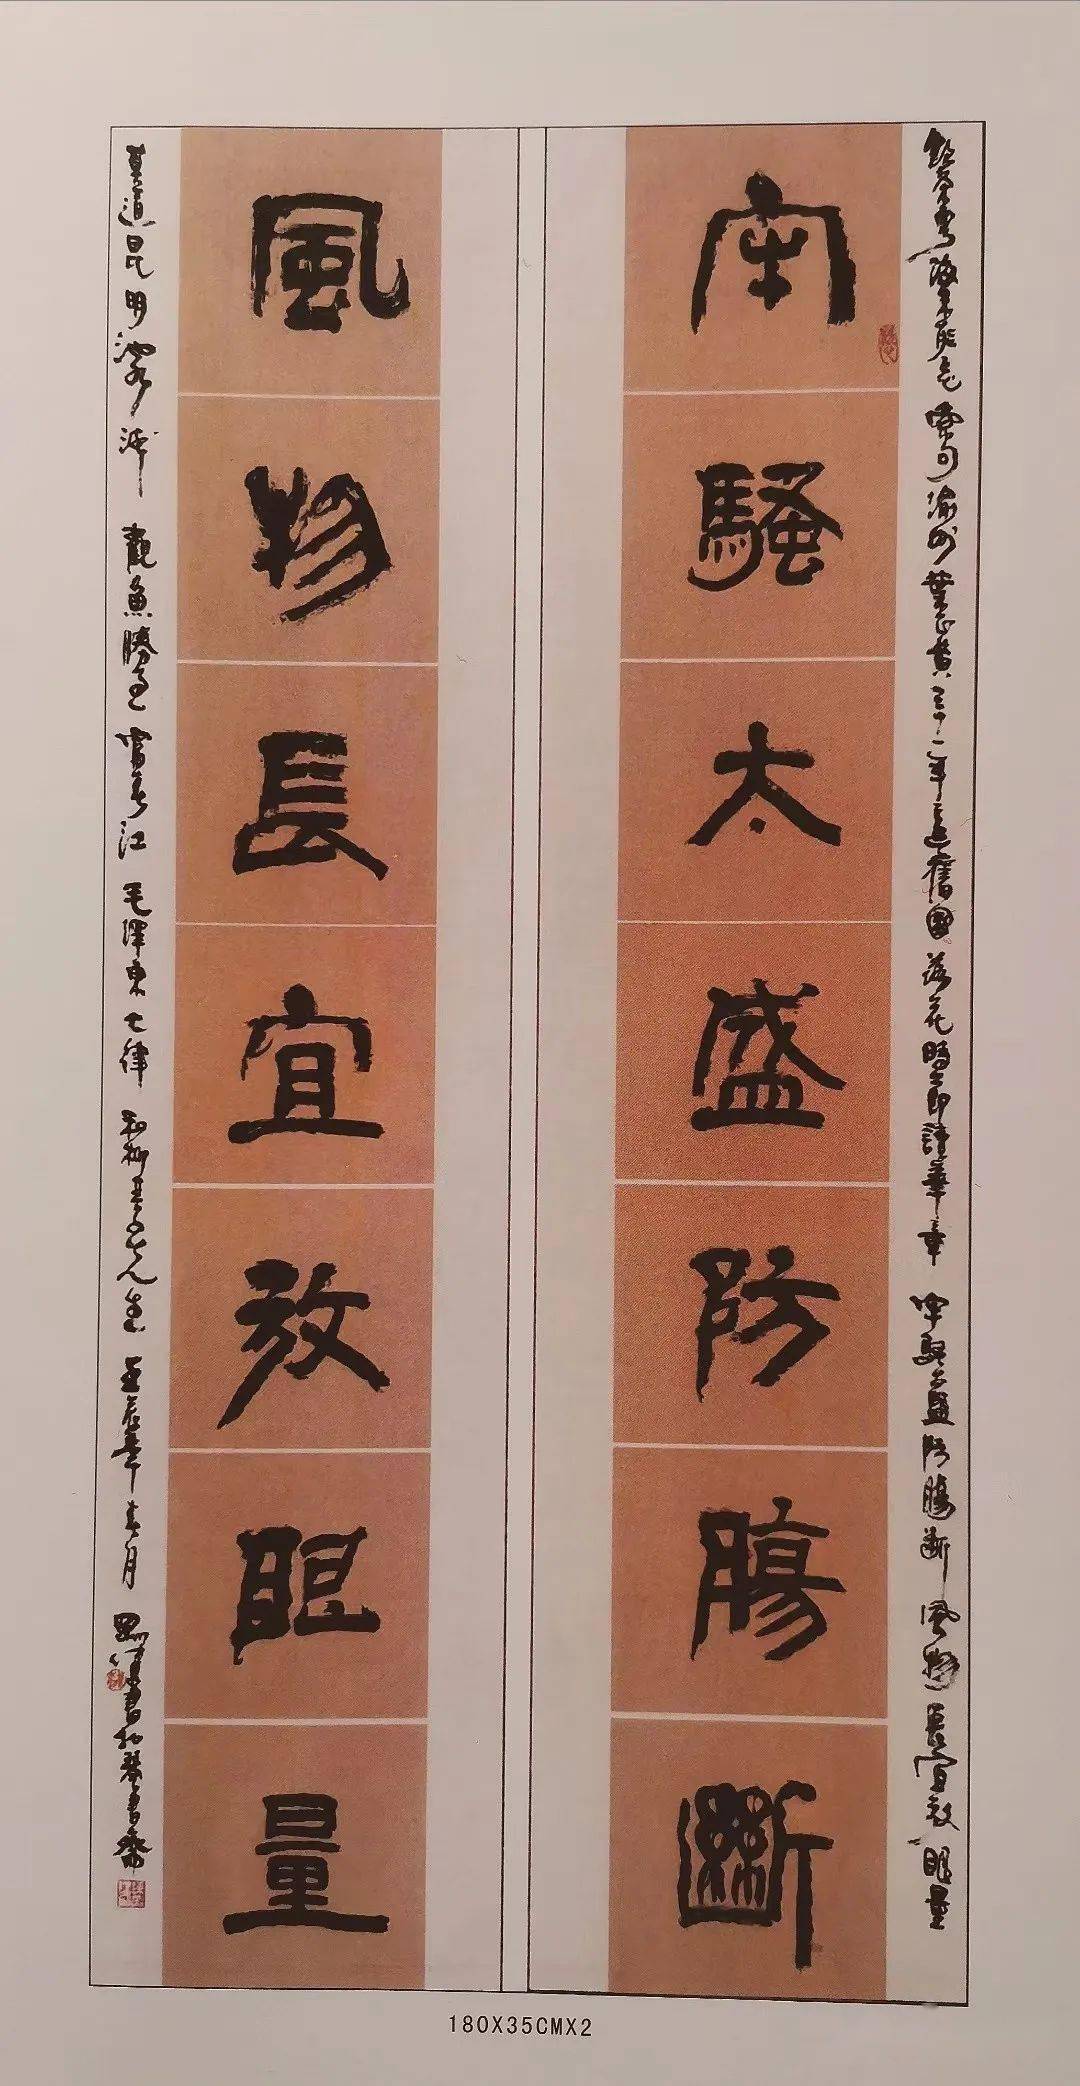 飲茶粵海未能忘 索句渝州葉正黃 三十一年還舊國 落花時節讀華章 牢騷太盛防腸斷 風物長宜放眼量
牢騷太盛防腸斷
風物長宜放眼量
莫道昆明池水淺 觀魚勝過富春江 毛澤東七律 和柳亞子先生 壬辰年春月 書於琴書齋
180X35CMX2